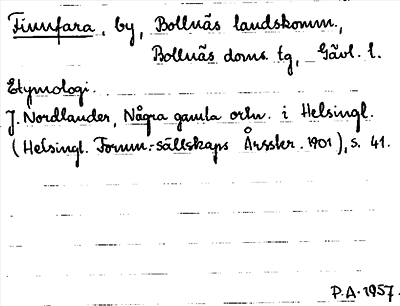 Finnfara, by, Bollnäs landskomm.,
Bollnäs doms. tg, Gävl. l.
Etymologi.
J. Nordlander, Några gamla ortn. i Helsingl.
(Helsingl. Fornm.-sällskaps Årsskr. 1901), s. 41.
P.A. 1957.